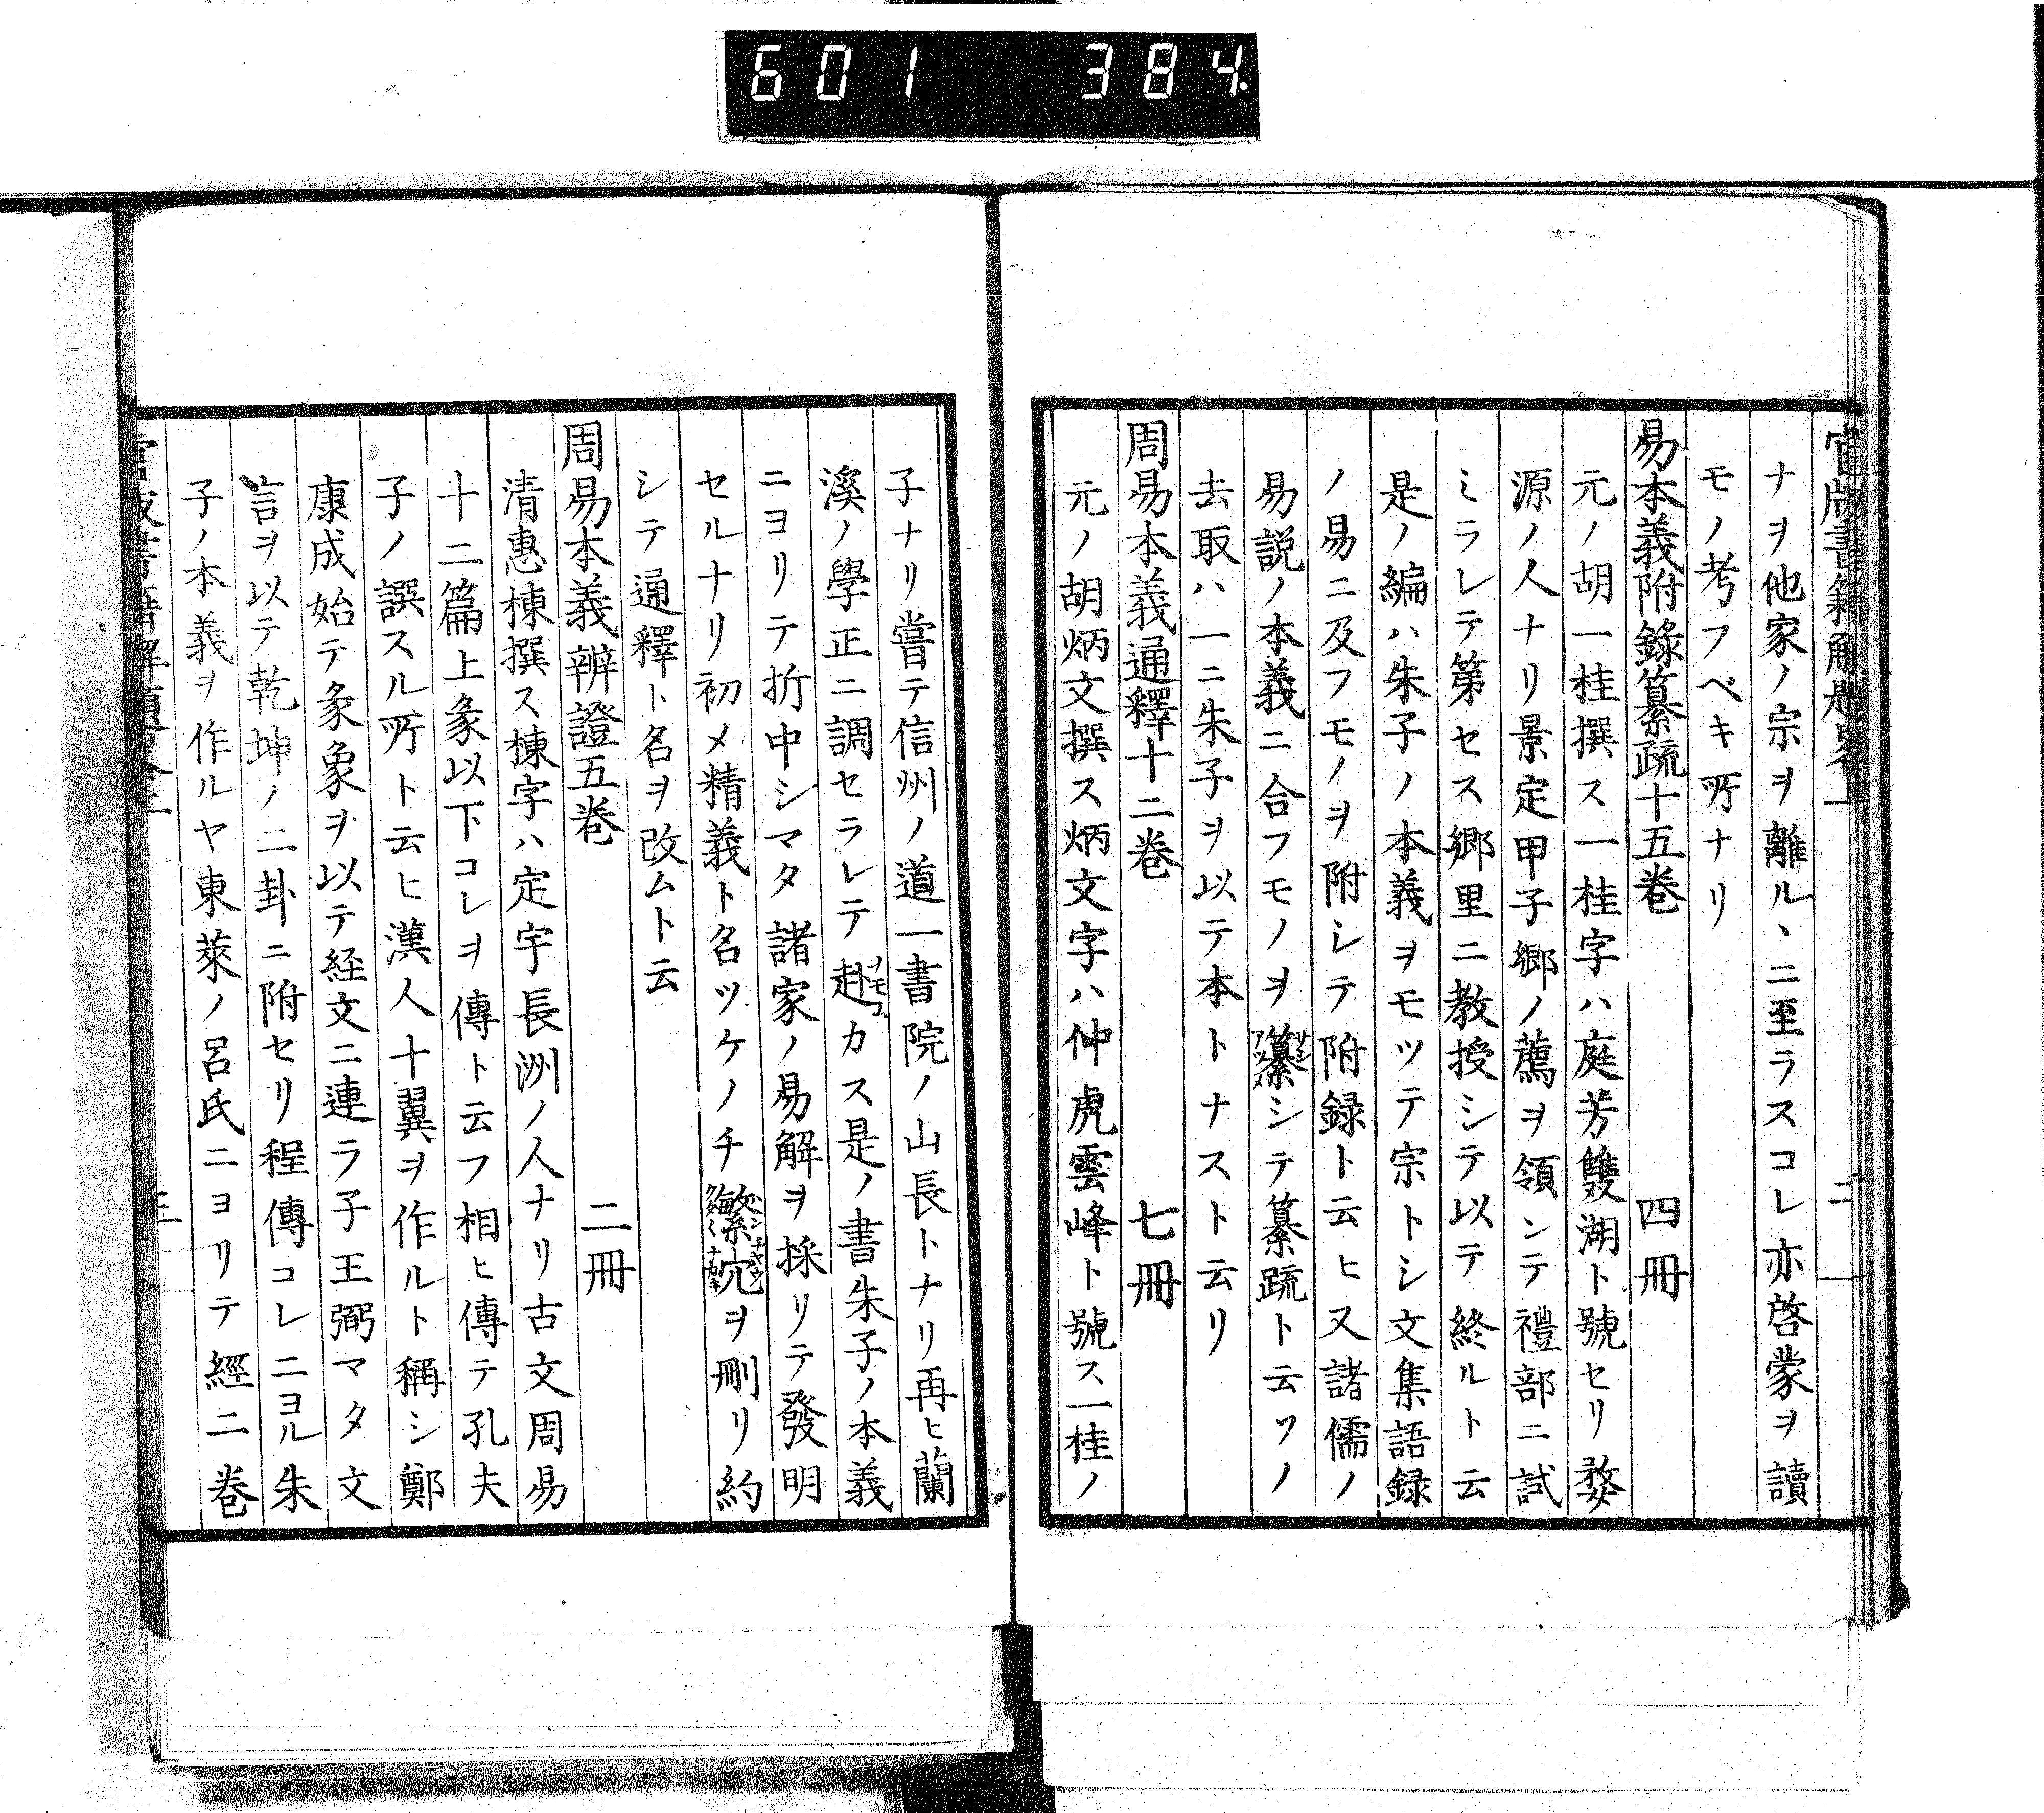 601 384
官版書籍解題畧一 二
ナヲ他家ノ宗ヲ離ルヽニ至ラスコレ亦啓蒙ヲ讀
モノ考フベキ所ナリ
易本義附錄纂疏十五巻 四冊
元ノ胡一桂撰ス一桂字ハ庭芳雙湖ト號セリ婺
源ノ人ナリ景定甲子郷ノ薦ヲ領シテ禮部ニ試
ミラレテ第セス郷里ニ教授シテ以テ終ルト云
是ノ編ハ朱子ノ本義ヲモツテ宗トシ文集語録
ノ易ニ及フモノヲ附シテ附録ト云ヒ又諸儒ノ
易説ノ本義ニ合フモノヲ纂シテ纂疏ト云ソノ
去取ハ一ニ朱子ヲ以テ本トナスト云リ
周易本義通釋十二巻 七冊
元ノ胡炳文撰ス炳文字ハ仲虎雲峰ト號ス一桂ノ
子ナリ嘗テ信州ノ道一書院ノ山長トナリ再ヒ蘭
溪ノ學正ニ調セラレテ赴カス是ノ書朱子ノ本義
ニヨリテ折中シマタ諸家ノ易解ヲ採リテ發明
セルナリ初メ精義ト名ツケノチ繁冗ヲ刪リ約
シテ通釋ト名ヲ改ムト云
周易本義辨證五巻 二冊
清惠棟撰ス棟字ハ定宇長洲ノ人ナリ古文周易
十二篇上彖以下コレヲ傳ト云フ相ヒ傳テ孔夫
子ノ譔スル所ト云ヒ漢人十翼ヲ作ルト稱シ鄭
康成始テ彖象ヲ以テ経文ニ連ラ子王弼マタ文
言ヲ以テ乾坤ノ二卦ニ附セリ程傳コレニヨル朱
子ノ本義ヲ作ルヤ東萊ノ呂氏ニヨリテ經二巻
三